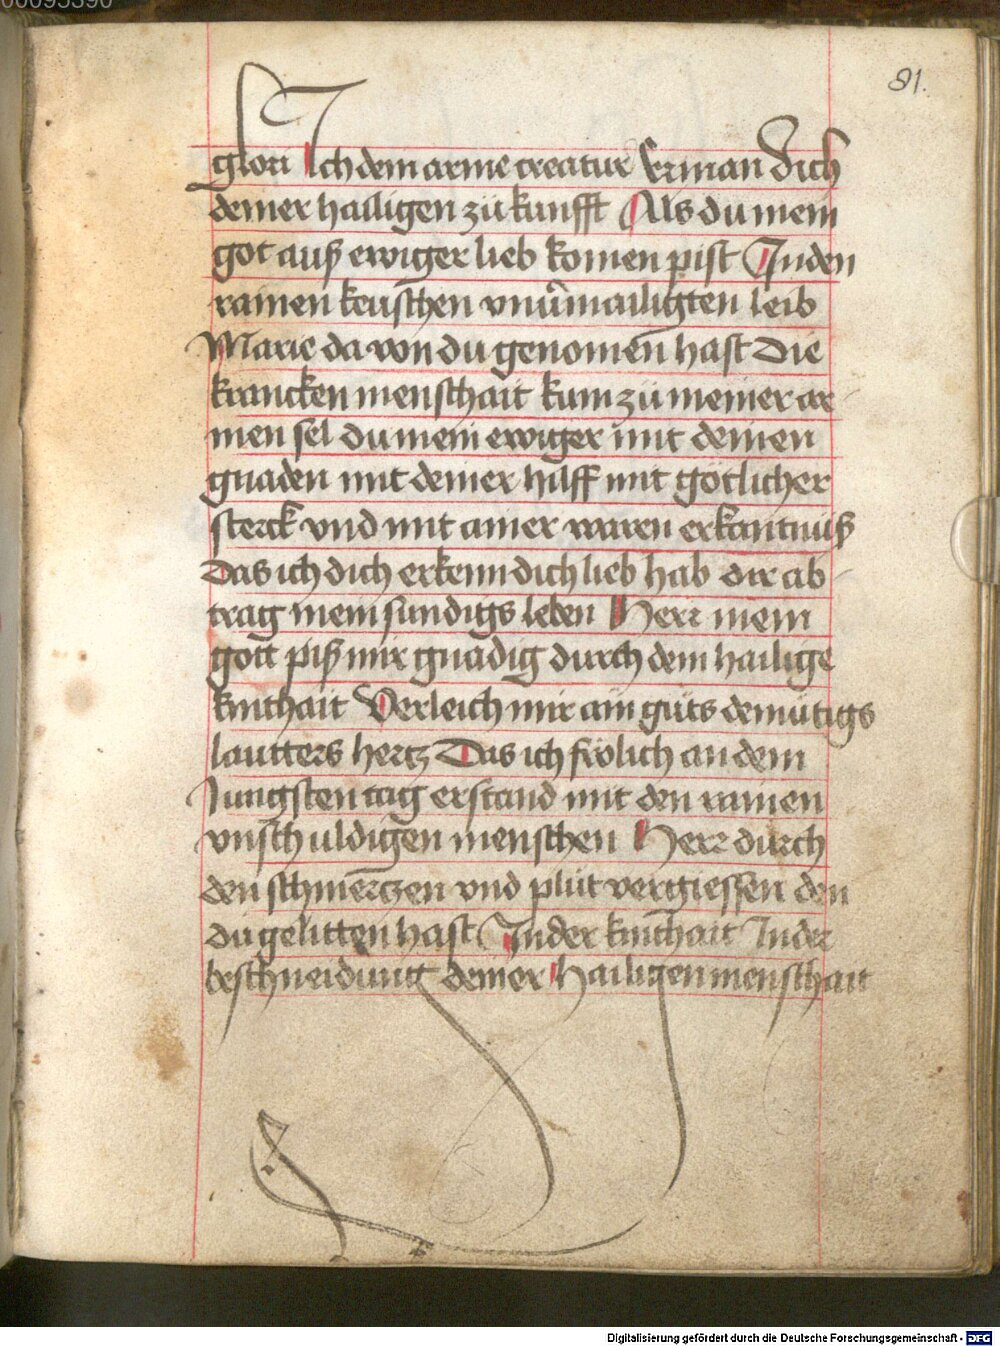 00095390
91.
glori Ich dein arme creatur Erman dich
deiner hailigen zů kunfft Als du mein
got auß ewiger lieb komen pist In den
rainen keuschen vnuermailigten leib
Marie da von du genomen hast Die
krancken menschait kum zů meiner ar
men sel du mein ewiger mit deinen
gnaden mit deiner hilff mit götlicher
sterck vnd mit ainer waren erkantnuß
Das ich dich erkenn dich lieb hab dir ab
trag mein sundigs leben Herr mein
gott piß mir gnädig durch dein hailige
kinthait Verleich mir ain gůts demütigs
lautters hertz Das ich frölich an dem
Jungsten tag erstand mit den rainen
vnschuldigen menschen Herr durch
den schmertzen vnd plůt vergiessen den
du gelitten hast In der kinthait In der
beschneidung deiner Hailigen menschait
Digitalisierung gefördert durch die Deutsche Forschungsgemeinschaft - DFG